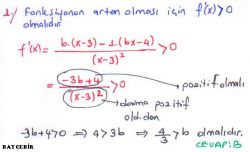 1-) Fonksiyonun artan olması için f'(x)>0
olmalıdır.
f'(x) = b.(x-3) - 1.(bx-4) / (x-3)² > 0
= -3b+4 / (x-3)² > 0
pozitif olmalı
daima pozitif
olduğundan
-3b+4>0 ⇒ 4>3b ⇒ 4/3 > b olmalıdır.
CEVAP: B
BAYÇELEBİR